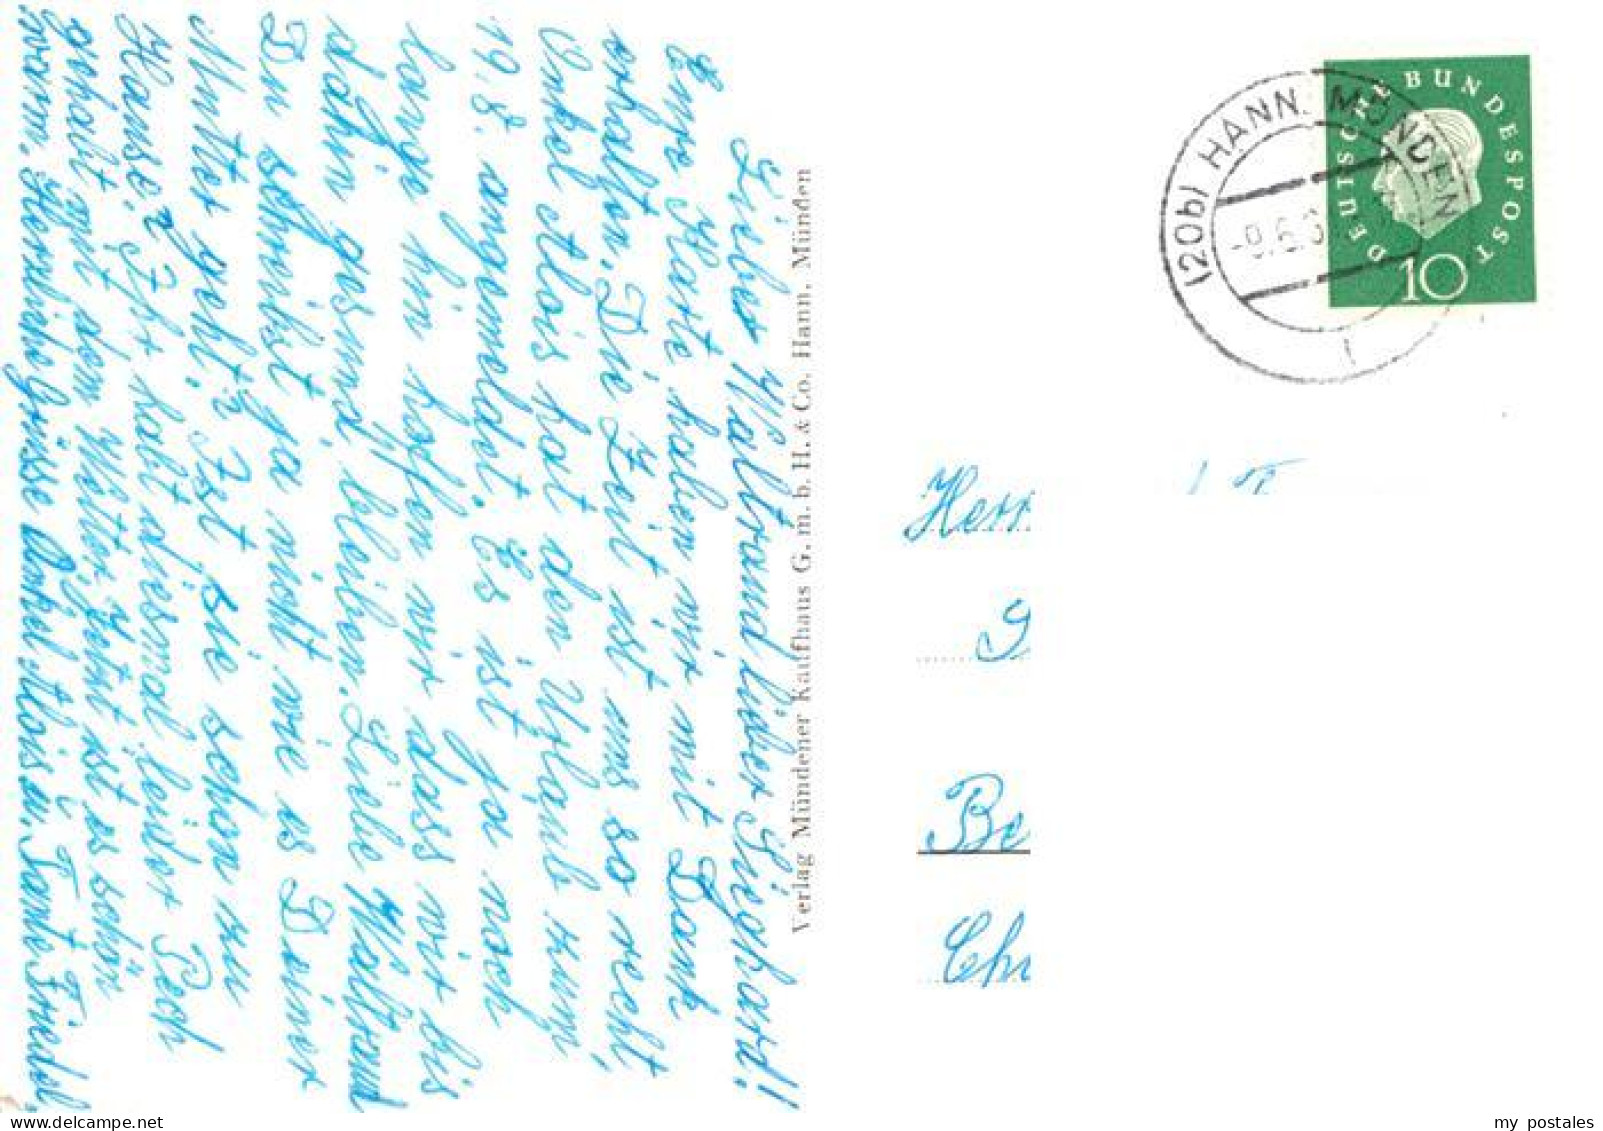 Liebe Waltraud lieber Sieghard!
Eure Karte haben wir mit Dank
erhalten. Die Zeit ist uns so recht,
Onkel Alois hat den Urlaub zum
19.8. angemeldet. Es ist ja noch
lange hin hoffen wir dass wir bis
dahin gesund bleiben. Liebe Waltraud
Du schreibst ja nicht wie es Deiner
Mutter geht? Ist sie schon zu
Hause? Ihr habt diesmal leider Pech
gehabt mit dem Wetter, jetzt ist es schön
warm. Herzliche Grüsse Onkel Alois u. Tante Friedel,
Verlag Mündener Kaufhaus G. m. b. H. & Co. Hann. Münden
(20b) HANN. MÜNDEN
-9.6.
DEUTSCHE BUNDESPOST
10
Herr
Be
Ch
my postales